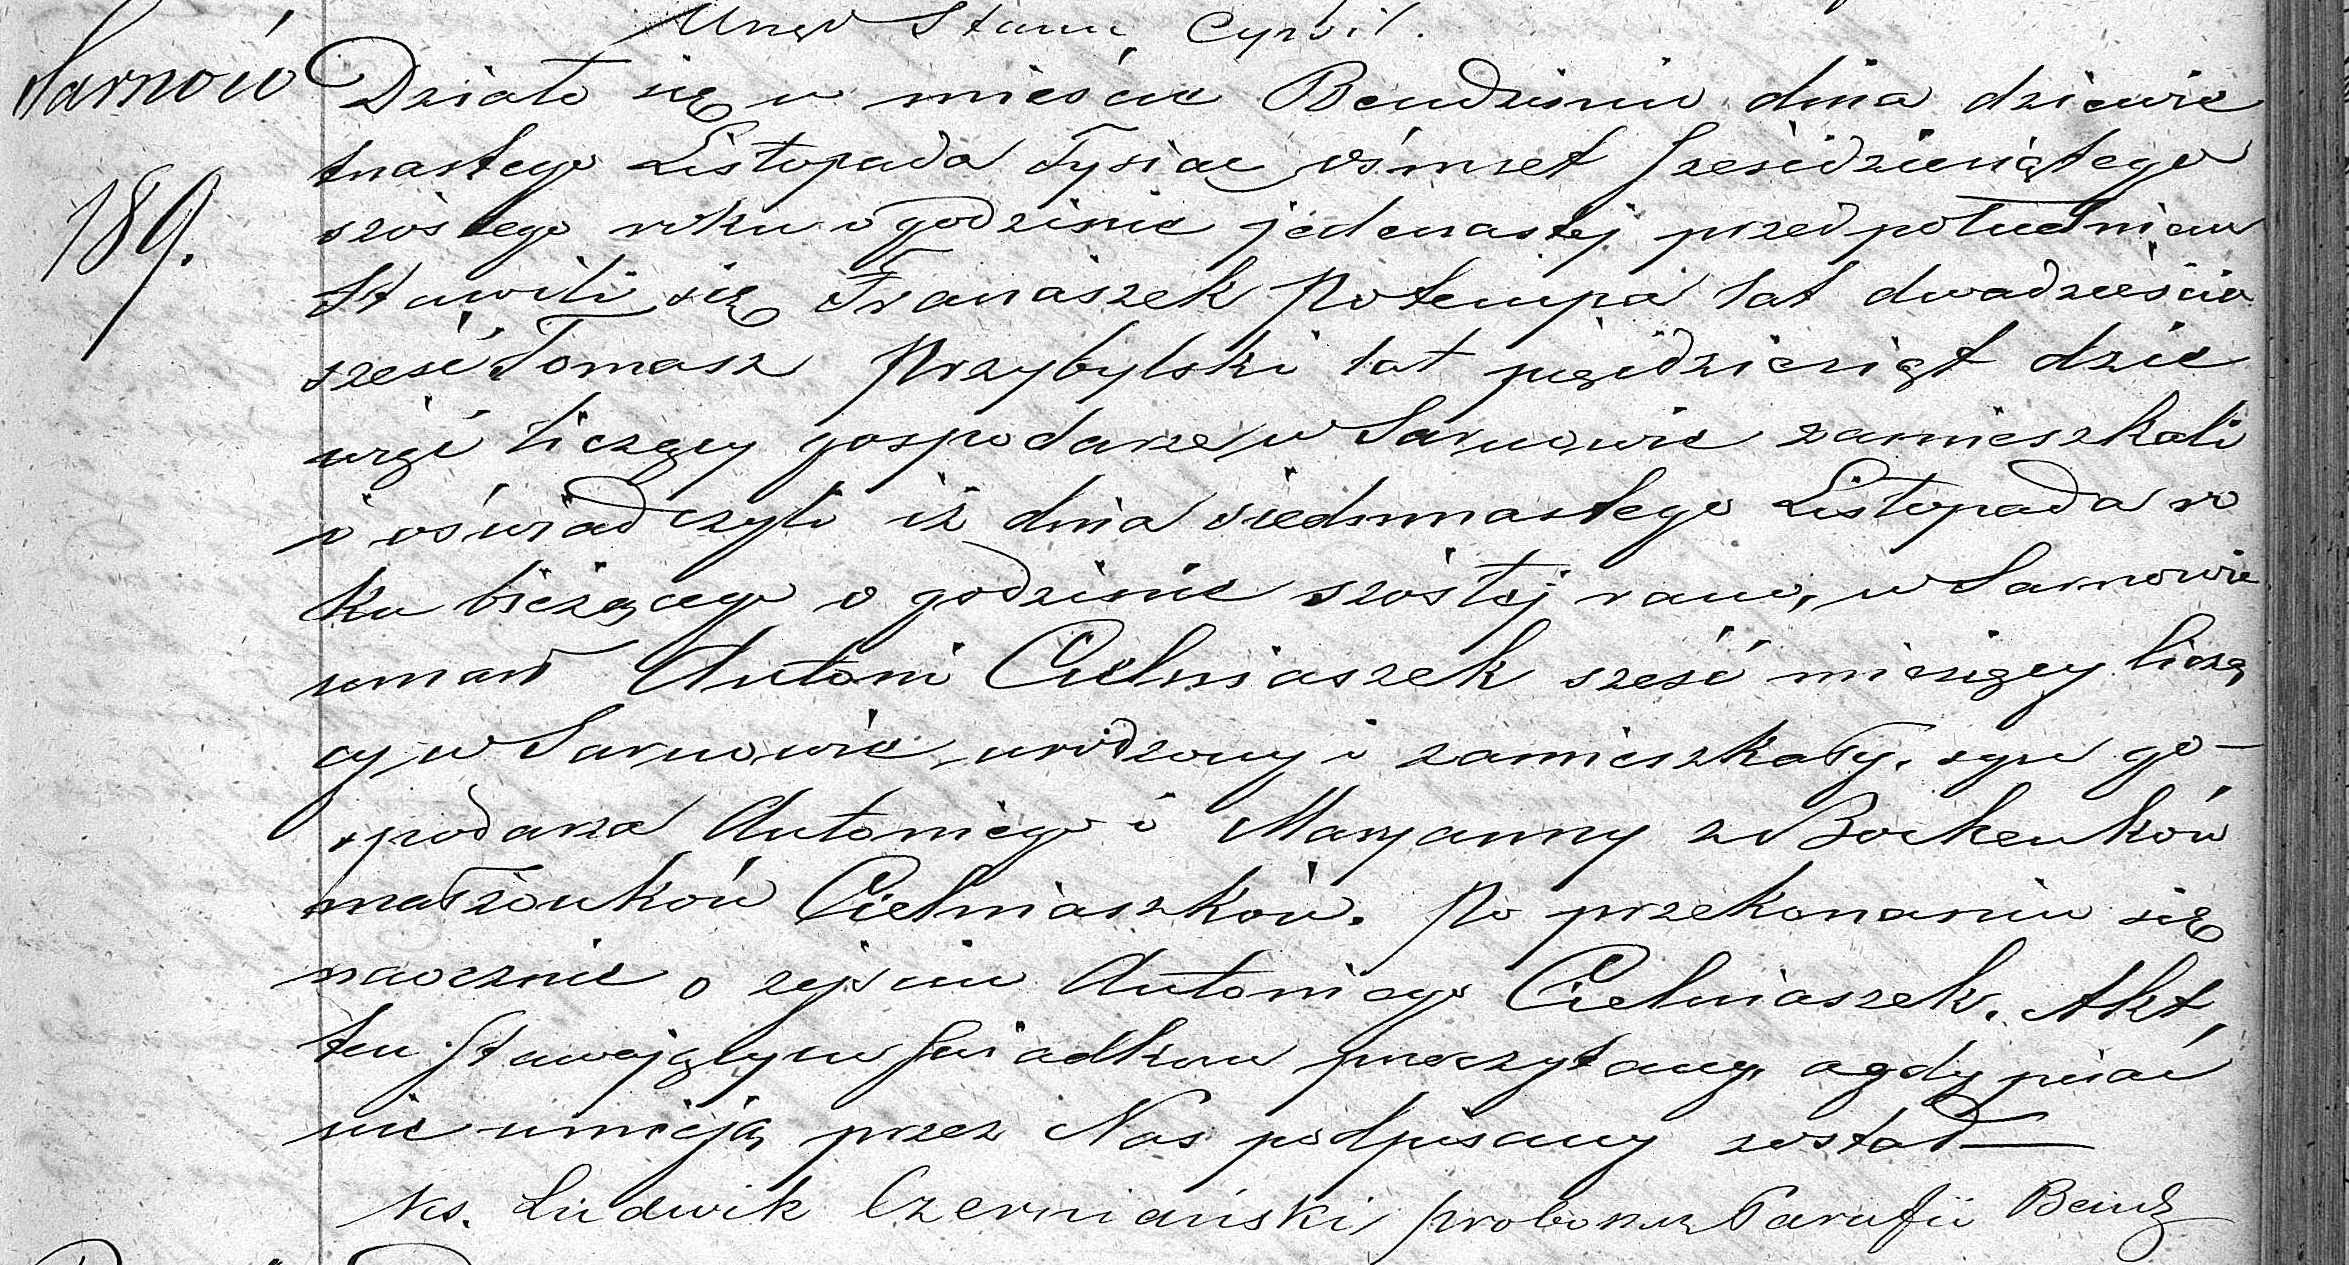 Urzęd Stanu Cywil.
Sarnów
189.
Działo się w mieście Bendzinie dnia dziewie
tnastego Listopada Tysiąc ośmset sześćdziesiątego
szóstego roku o godzinie jedenastej przed południem
Stawili się Franciszek Potempa lat dwadzieścia
sześć Tomasz Przybylski lat pięćdziesiąt dzie
więć liczący gospodarze w Sarnowie zamieszkali
i oświadczyli iż dnia siedmnastego Listopada ro
ku bieżącego o godzinie szóstej rano, w Sarnowie
umarł Antoni Cielniaszek sześć miesięcy liczą
cy, w Sarnowie urodzony i zamieszkały, syn go-
spodarza Antoniego i Maryanny z Borkenków
małżonków Cielniaszków. Po przekonaniu się
naocznie o zejściu Antoniego Cielniaszek. Akt
ten Stawającym Świadkom przeczytany, a gdy pisać
nie umieją przez Nas podpisany został
Ks. Ludwik Czerniański proboszcz Parafii Bendz